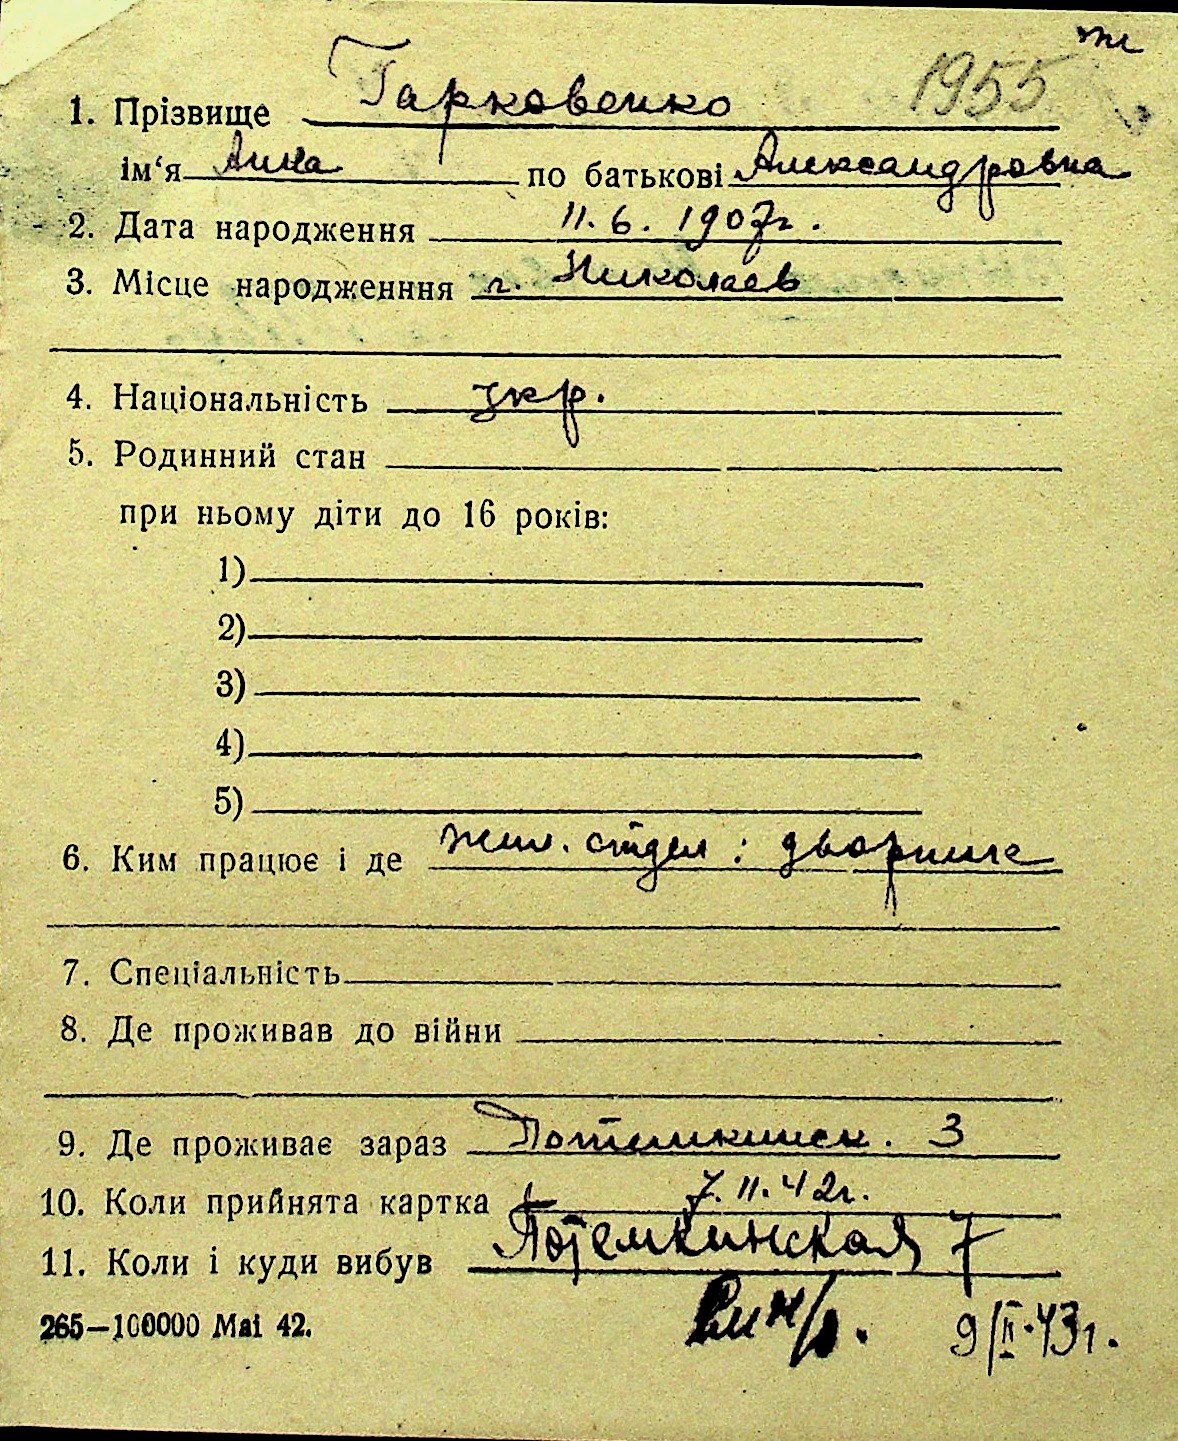 1955
1. Прізвище Гарковенко
ім‘я Анна по батькові Александровна
2. Дата народження 11.6.1907г.
3. Місце народженння г. Николаев
4. Національність укр.
5. Родинний стан
при ньому діти до 16 років:
1)
2)
3)
4)
5)
6. Ким працює і де жил. отдел: дворник
7. Спеціальність
8. Де проживав до війни
9. Де проживає зараз Потемкинск. 3
10. Коли прийнята картка 7.11.42г.
11. Коли і куди вибув Потемкинская 7
265—100000 Mai 42. 9/II.43г.